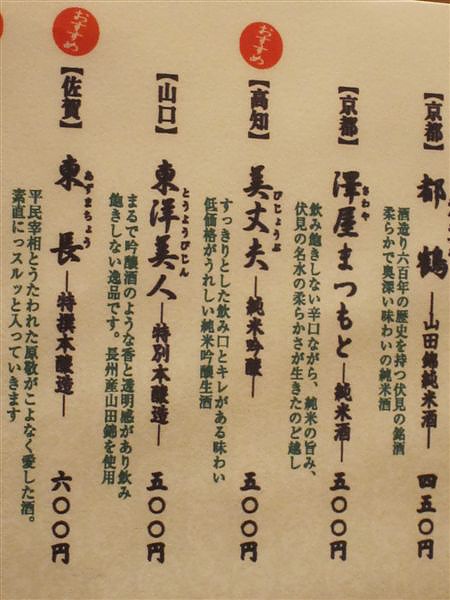 【京都】
都鶴―山田錦純米酒―
四五〇円
酒造り六百年の歴史を持つ伏見の銘酒
柔らかで奥深い味わいの純米酒
【京都】
さわや
澤屋まつもと―純米酒―
五〇〇円
飲み飽きしない辛口ながら、純米の旨み、
伏見の名水の柔らかさが生きたのど越し
おすすめ
【高知】
びじょうぶ
美丈夫―純米吟醸―
五〇〇円
すっきりとした飲み口とキレがある味わい
低価格がうれしい純米吟醸生酒
【山口】
とうようびじん
東洋美人―特別本醸造―
五〇〇円
まるで吟醸酒のような香と透明感があり飲み
飽きしない逸品です。長州産山田錦を使用
おすすめ
【佐賀】
あずまちょう
東長―特撰本醸造―
六〇〇円
平民宰相とうたわれた原敬がこよなく愛した酒。
素直にっスルッと入っていきます